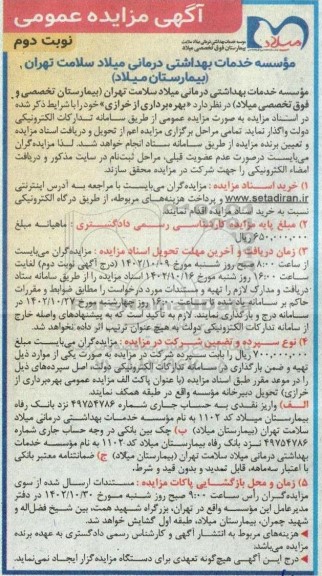 آگهی مزایده عمومی
نوبت دوم
میلاد
موسسه خدمات بهداشتی درمانی میلاد سلامت
بیمارستان فوق تخصصی میلاد
مؤسسه خدمات بهداشتی درمانی میلاد سلامت تهران
(بیمارستان میلاد)
مؤسسه خدمات بهداشتی درمانی میلاد سلامت تهران (بیمارستان تخصصی و
فوق تخصصی میلاد) در نظر دارد «بهره‌برداری از خرازی» خود را با شرایط ذکر شده
در اسناد مزایده به صورت مزایده عمومی از طریق سامانه تدارکات الکترونیکی
دولت واگذار نماید. تمامی مراحل برگزاری مزایده اعم از تحویل و دریافت اسناد مزایده
و تعیین برنده مزایده از طریق سامانه ستاد انجام خواهد شد. لذا مزایده‌گران
می‌بایست درصورت عدم عضویت قبلی، مراحل ثبت‌نام در سایت مذکور و دریافت
امضاء الکترونیکی را جهت شرکت در مزایده محقق سازند.
۱) خرید اسناد مزایده : مزایده‌گران می‌بایست با مراجعه به آدرس اینترنتی
www.setadiran.ir و پرداخت هزینه‌های مربوطه، از طریق درگاه الکترونیکی
نسبت به خرید اسناد مزایده اقدام نمایند
۲) مبلغ پایه مزایده کارشناسی رسمی دادگستری : ماهیانه مبلغ
۶۵۰,۰۰۰,۰۰۰ ریال
۳) زمان دریافت و آخرین مهلت تحویل اسناد مزایده : مزایده‌گران می‌بایست از
ساعت ۸:۰۰ صبح روز شنبه مورخ ۱۴۰۲/۱۰/۰۹ (درج آگهی نوبت دوم) لغایت
ساعت ۱۶:۰۰ روز شنبه مورخ ۱۴۰۲/۱۰/۱۶ اسناد مزایده را از طریق سامانه ستاد
دریافت و مدارک لازم را تهیه و مستندات مورد درخواست را مطابق ضوابط و مقررات
حاکم بر سامانه یاد شده تا ساعت ۱۶:۰۰ روز چهارشنبه مورخ ۱۴۰۲/۱۰/۲۷ در
سامانه درج و بارگذاری نمایند. لازم به تأکید است که به پیشنهادهای واصله خارج
از سامانه تدارکات الکترونیکی دولت به هیچ عنوان ترتیب اثر داده نخواهد شد.
۴) نوع سپرده و تضمین شرکت در مزایده : مزایده‌گران می‌بایست مبلغ
۷۰۰,۰۰۰,۰۰۰ ریال را بابت سپرده شرکت در مزایده به صورت یکی از موارد ذیل
تهیه و ضمن بارگذاری در سامانه تدارکات الکترونیکی دولت، اصل سپرده‌های ذیل
را در موعد مقرر طبق اسناد مزایده (با عنوان پاکت الف مزایده عمومی بهره‌برداری از
خرازی) تحویل دبیرخانه مؤسسه واقع در طبقه همکف نمایند.
الف) واریز نقدی به حساب جاری شماره ۴۹۷۵۴۷۸۶ نزد بانک رفاه
بیمارستان میلاد کد ۱۱۰۲ به نام مؤسسه خدمات بهداشتی درمانی میلاد
سلامت تهران (بیمارستان میلاد) ب) چک بین بانکی در وجه حساب جاری شماره
۴۹۷۵۴۷۸۶ نزد بانک رفاه بیمارستان میلاد کد ۱۱۰۲ به نام مؤسسه خدمات
بهداشتی درمانی میلاد سلامت تهران (بیمارستان میلاد) ج) ضمانتنامه معتبر بانکی
با اعتبار سه‌ماهه، قابل تمدید و بدون قید و شرط.
۵) زمان و محل بازگشایی پاکات مزایده : مستندات ارسال شده از سوی
مزایده‌گران رأس ساعت ۹:۰۰ صبح روز شنبه مورخ ۱۴۰۲/۱۰/۳۰ در دفتر
مدیرعامل این مؤسسه واقع در تهران، بزرگراه شهید همت، بین شیخ فضل‌اله و
شهید چمران، بیمارستان میلاد، طبقه اول گشایش خواهد شد.
◄ هزینه‌های مربوط به انتشار آگهی و کارشناس رسمی دادگستری به عهده برنده
مزایده می‌باشد:
◄ درج این آگهی هیچ‌گونه تعهدی برای دستگاه مزایده‌گزار ایجاد نمی‌نماید.